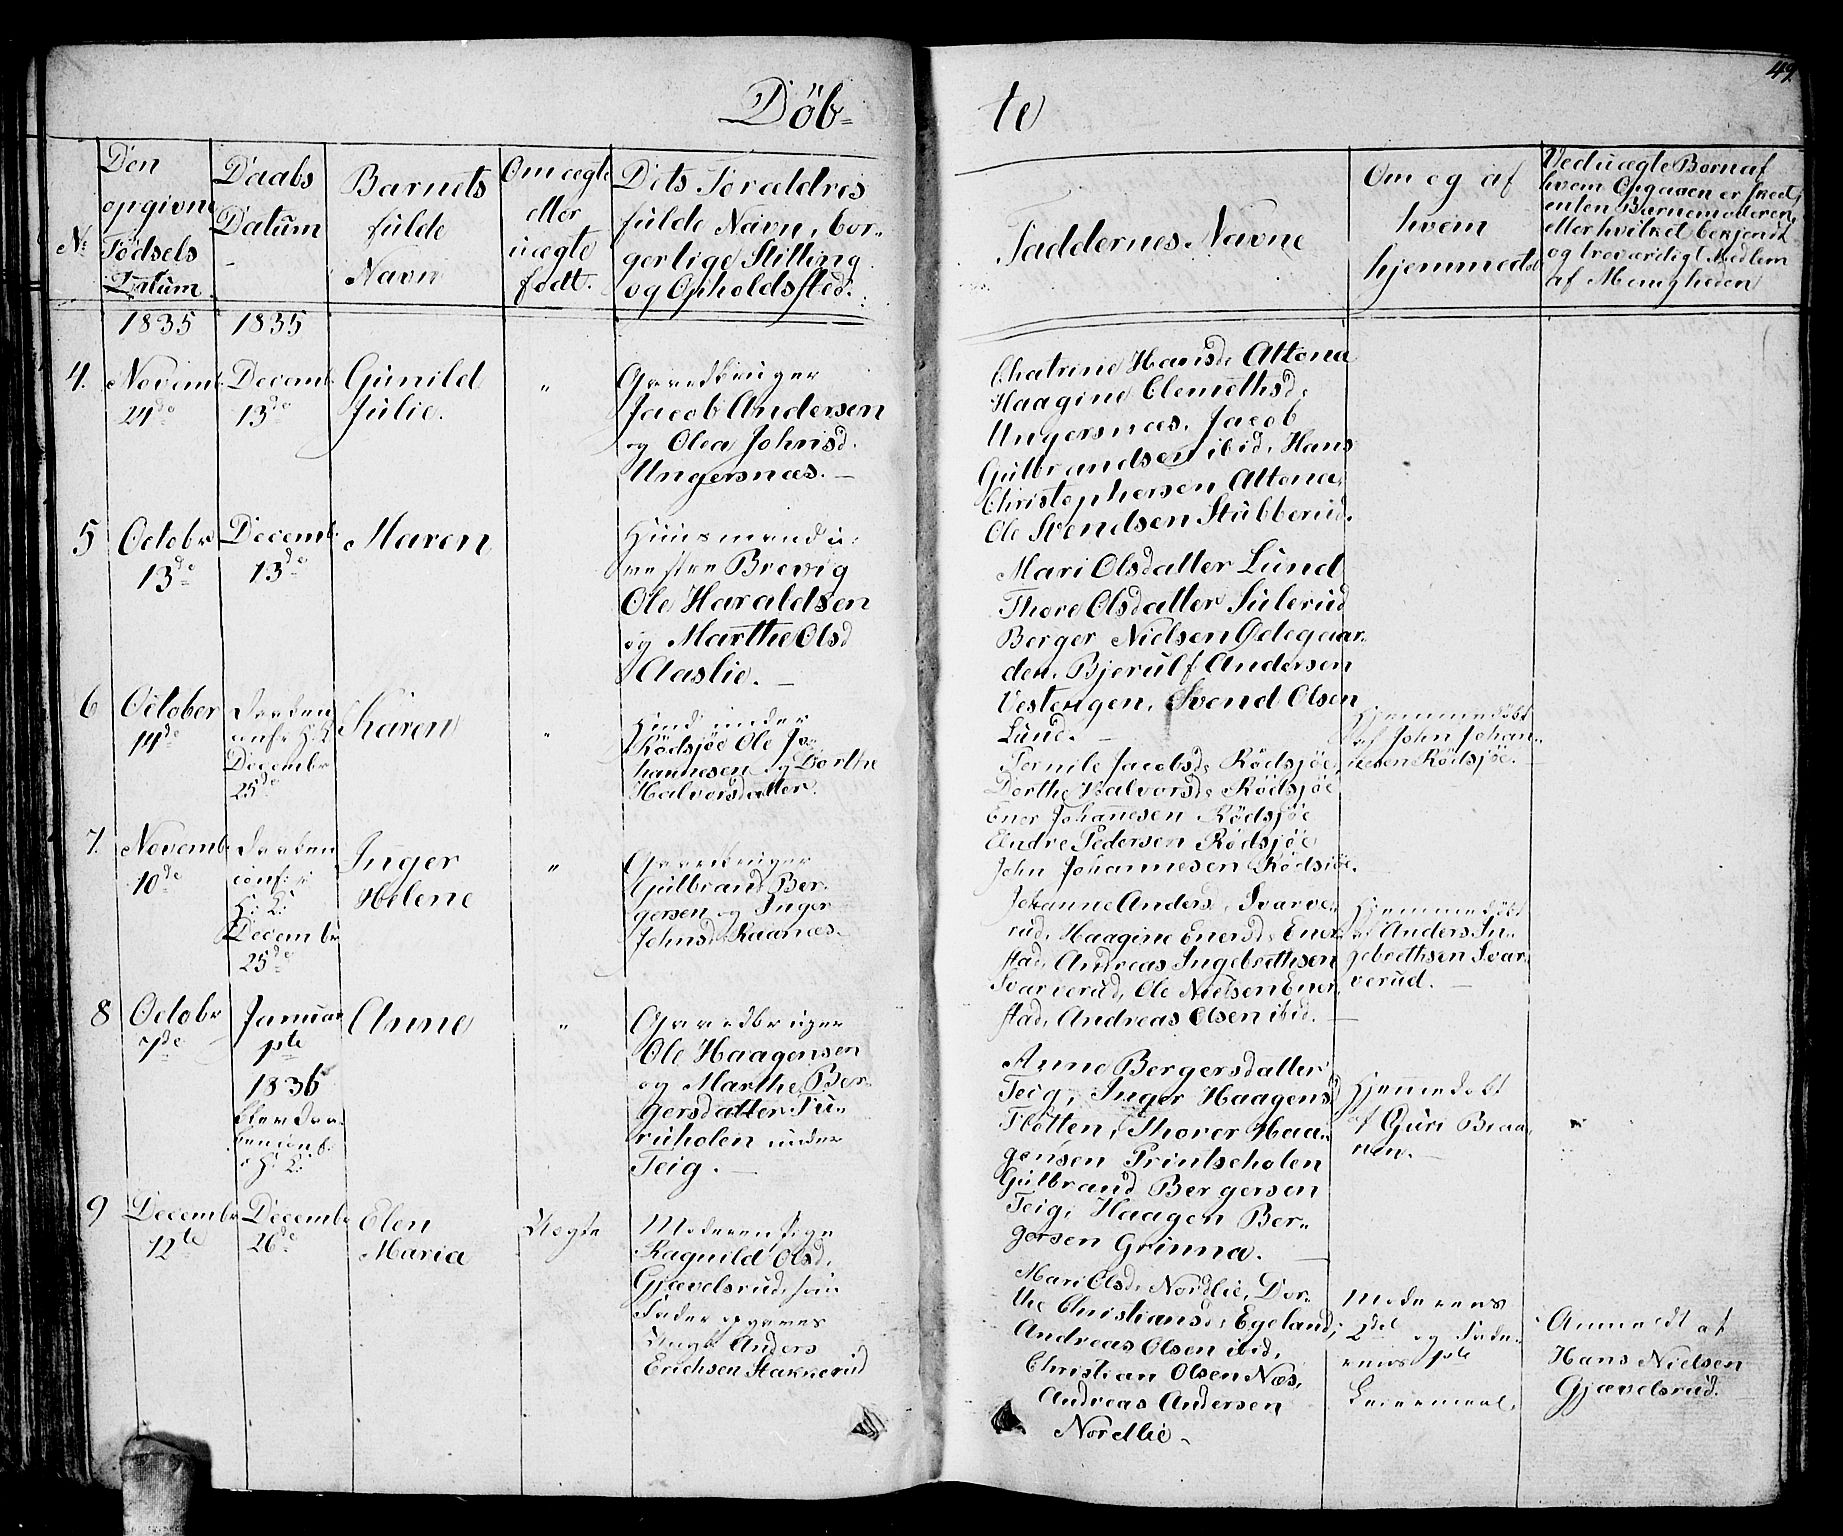 49
Döb-
te
Nr
Den
opgivne
Födsels
Datum
Daabs
Datum
Barnets
fulde
Navn
Om ægte
eller
uægte
födt.
Dets Forældres
fulde Navn, bor-
gerlige Stilling
og Opholdssted.
Faddernes Navne
Om og af
hvem
hjemmedöbt
Ved uægte Börn af
hvem Opgaven er skeet,
enten Barnemoderen,
eller hvilket bekjendt
og troværdigt Medlem
af Menigheden
1835
1835
4.
Novemb.
24de
Decemb.
13de
Gunild
Julie.
"
Gaardbruger
Jacob Andersen
og Olea Johnsd.
Ungersnæs. -
Chatrine Hansd. Altona
Haagine Clemethsd.
Ungersnæs. Jacob
Gulbrandsen ibid. Hans
Christophersen Altona,
Ole Svendsen Stubberud.
5
Octobr
13de
Decemb.
13de
Maren
Huusmand u.
Brevig
Ole Haraldsen
og Marthe Olsd
Aaslie. -
Mari Olsdatter Lund
Thore Olsdatter Sulerud
Berger Nielsen Ödegaar-
den. Bjerulf Andersen
Vesterigen, Svend Olsen
Lund. -
6
October
14de
Daaben
conf. i H. K.
Decembr
25de
Karen
"
Huusmd. under
Rödsjöe Ole Jo-
hannesen og Dorthe
Halvorsdatter.
Pernile Jacobsd. Rödsjöe,
Dorthe Halvorsd. Rödsjöe
Ener Johannesen Rödsjöe
Endre Pedersen Rödsjöe
John Johannesen Rödsjöe.
Hjemmedöbt
af John Johan-
nesen Rödsjöe.
7.
Novemb.
10de
Daaben
conf. i
H: K:
Decembr
25de
Inger
Helene
"
Gaardbruger
Gulbrand Ber-
gersen og Inger
Johnsd. Raanæs.
Johanne Anders. Svarve-
rud, Haagine Enersd. Ener-
stad, Andreas Ingebrethsen
Svarverud, Ole Nielsen Ener-
stad, Andreas Olsen ibid. -
Hjemmedöbt
af Anders In-
gebrethsen Svar-
verud. -
8
Octobr
7de
Januar
1ste
1836
blev Daa-
ben conf.
i H: K:
Anne
"
Gaardbruger
Ole Haagensen
og Marthe Ber-
gersdatter Fu-
ruholen under
Teig. -
Anne Bergersdatter
Teig, Inger Haagensd
Flötten, Thorer Haa-
gensen Printseholen
Gulbrand Bergersen
Teig, Haagen Ber-
gersen Grinna.
Hjemmedöbt
af Guri Braa-
nen. -
9
Decembr
12te
Decembr
26de
Elen
Maria
Uægte
Moderen Pige
Ragnild Olsd.
Gjævelsrud, som
Fader opgaves
Ungk. Anders
Erichsen Stakkerud
Mari Olsd. Nordlie, Dor-
the Christiansd. Egeland,
Andreas Olsen ibid,
Christian Olsen Næs,
Andreas Andersen
Nordlie -
Moderens
2det og Fade-
rens 1ste
Leiermaal.
Anmeldt af
Hans Nielsen
Gjævelsrud.